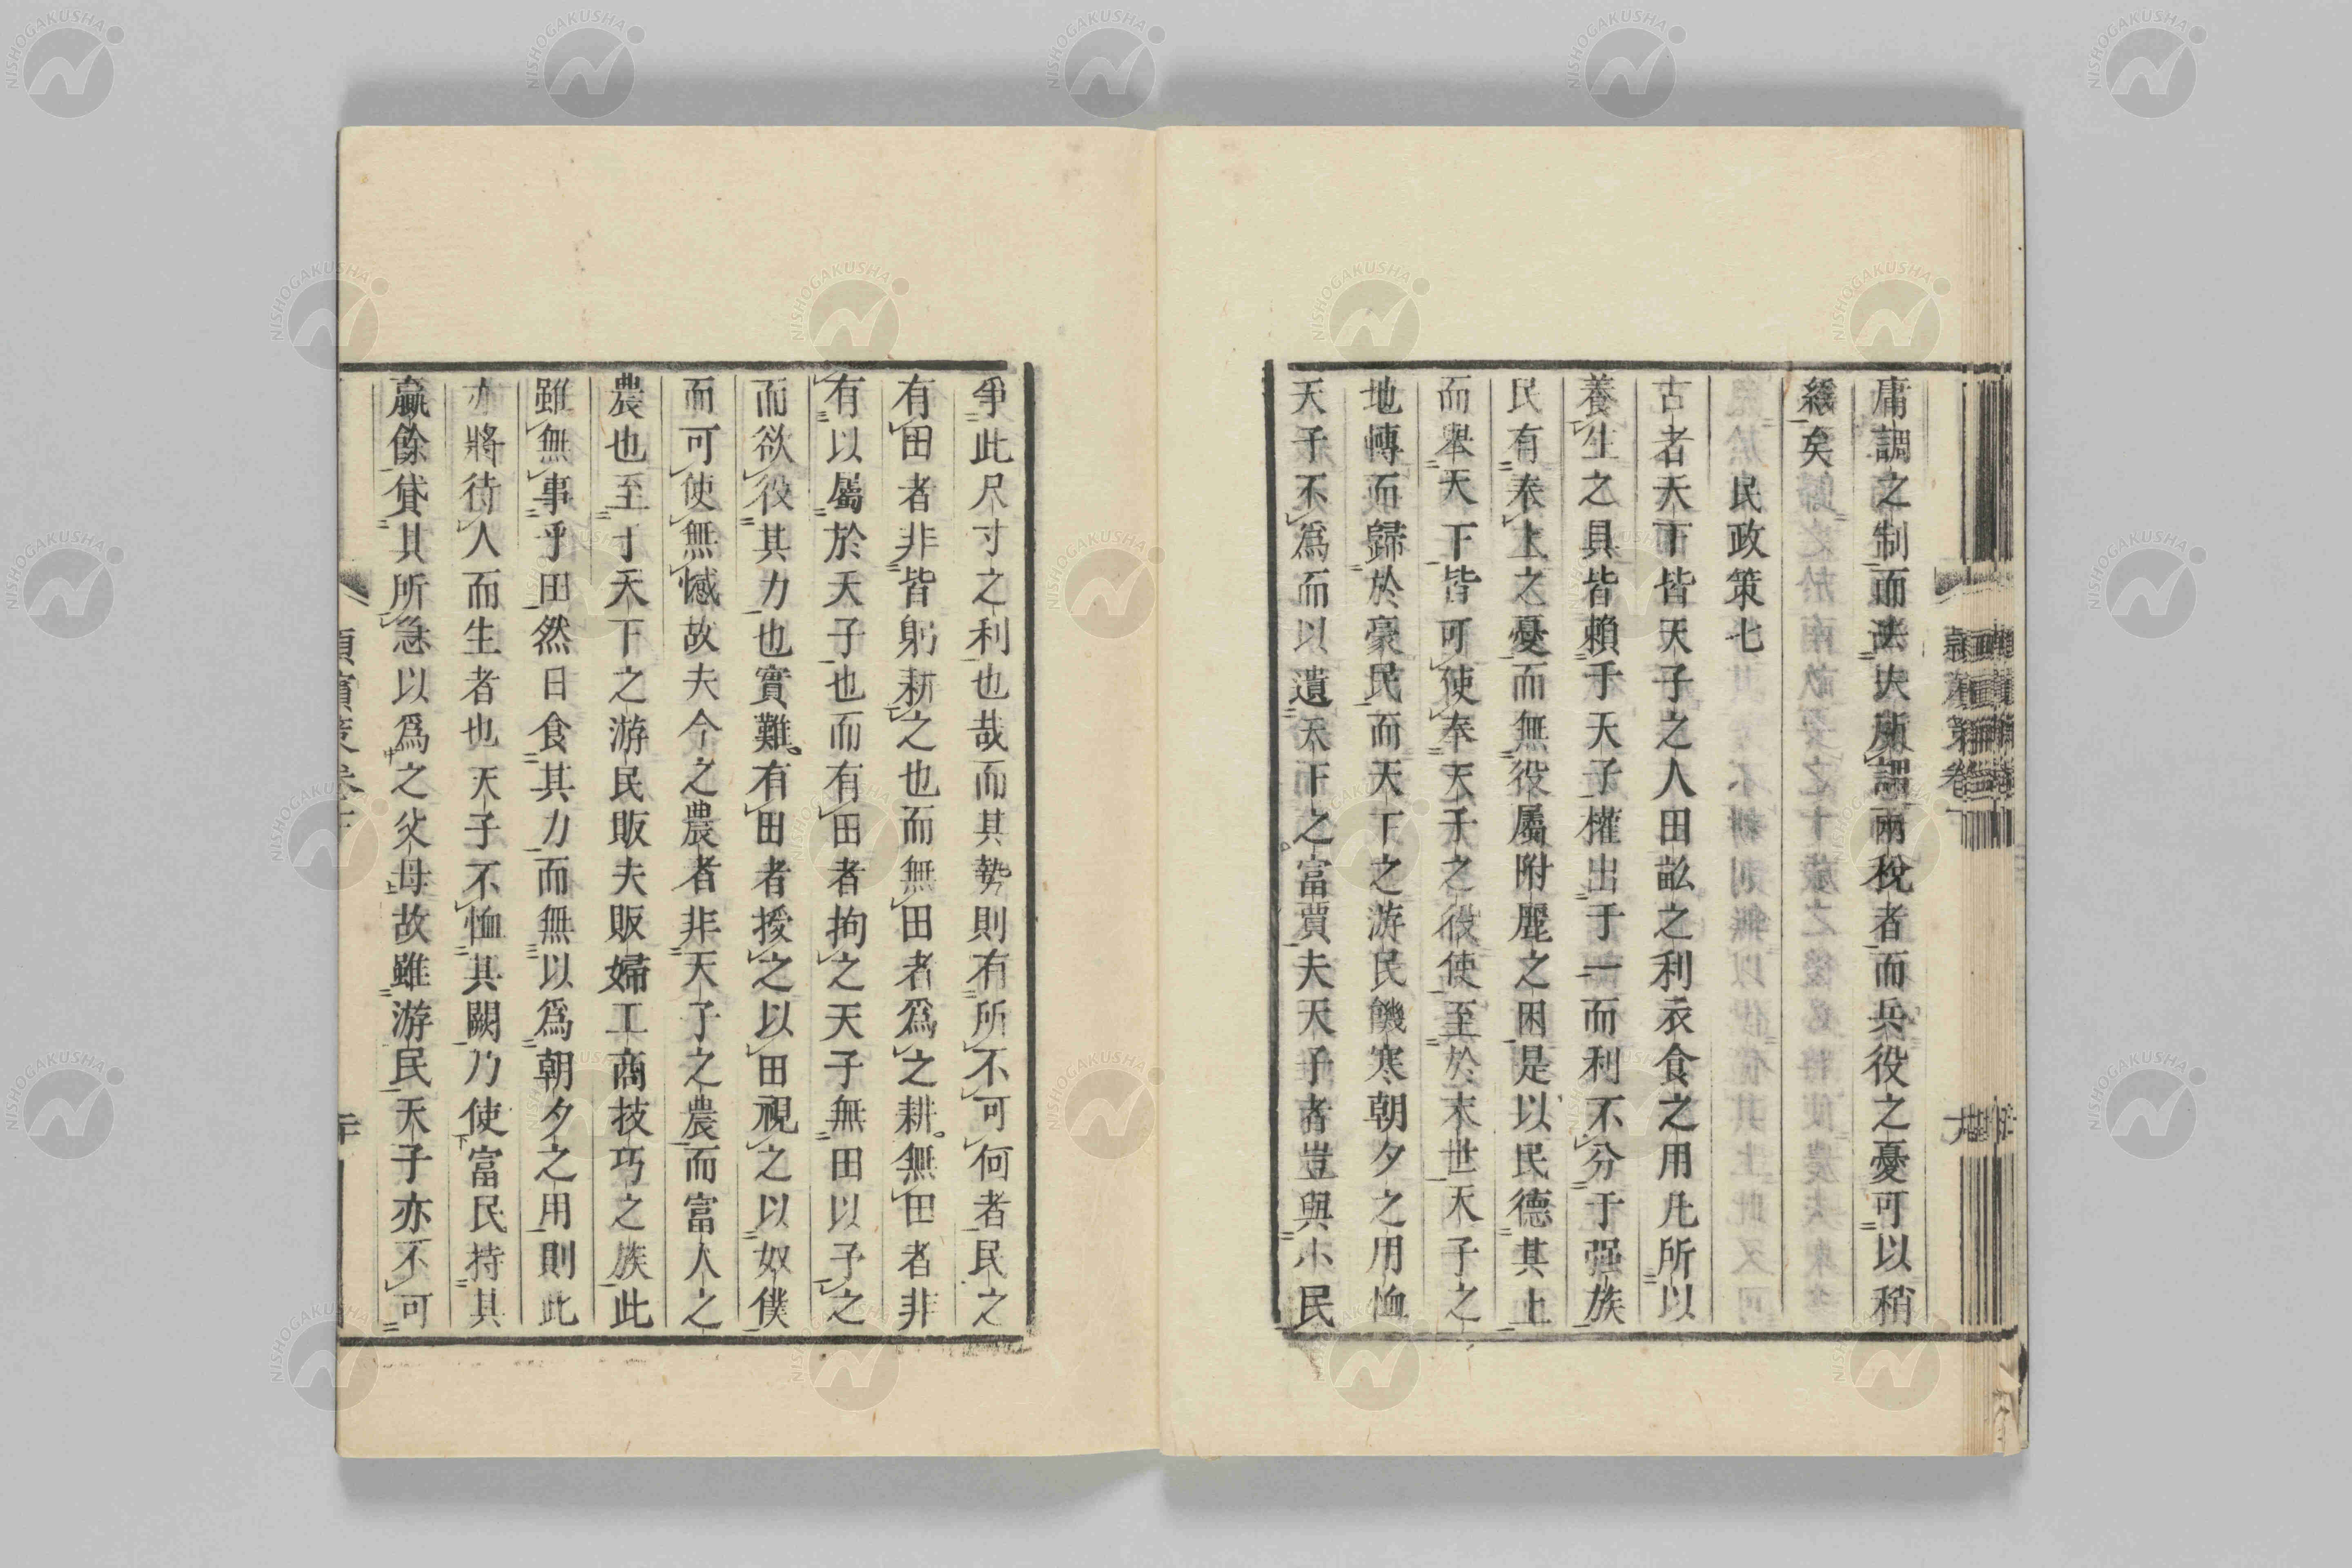 庸調之制而去夫所謂兩稅者而兵役之憂可以稍
緩矣
民政策七
古者天下皆天子之人田畝之利衣食之用凡所以
養生之具皆賴于天子權出于一而利不分于强族
民有奉上之憂而無役屬附麗之困是以民德其上
而舉天下皆可使奉天子之役使至於末世天子之
地轉而歸於豪民而天下之游民饑寒朝夕之用恤
天子不爲而以遺天下之富賈夫天子者豈與小民
爭此尺寸之利也哉而其勢則有所不可何者民之
有田者非皆躬耕之也而無田者爲之耕無田者非
有以屬於天子也而有田者拘之天子無田以予之
而欲役其力也實難有田者授之以田視之以奴僕
而可使無憾故夫今之農者非天子之農而富人之
農也至于天下之游民販夫販婦工商技巧之族此
雖無事乎田然日食其力而無以爲朝夕之用則此
亦將待人而生者也天子不恤其闕乃使富民持其
贏餘貸其所急以爲之父母故雖游民天子亦不可
NISHOGAKUSHA